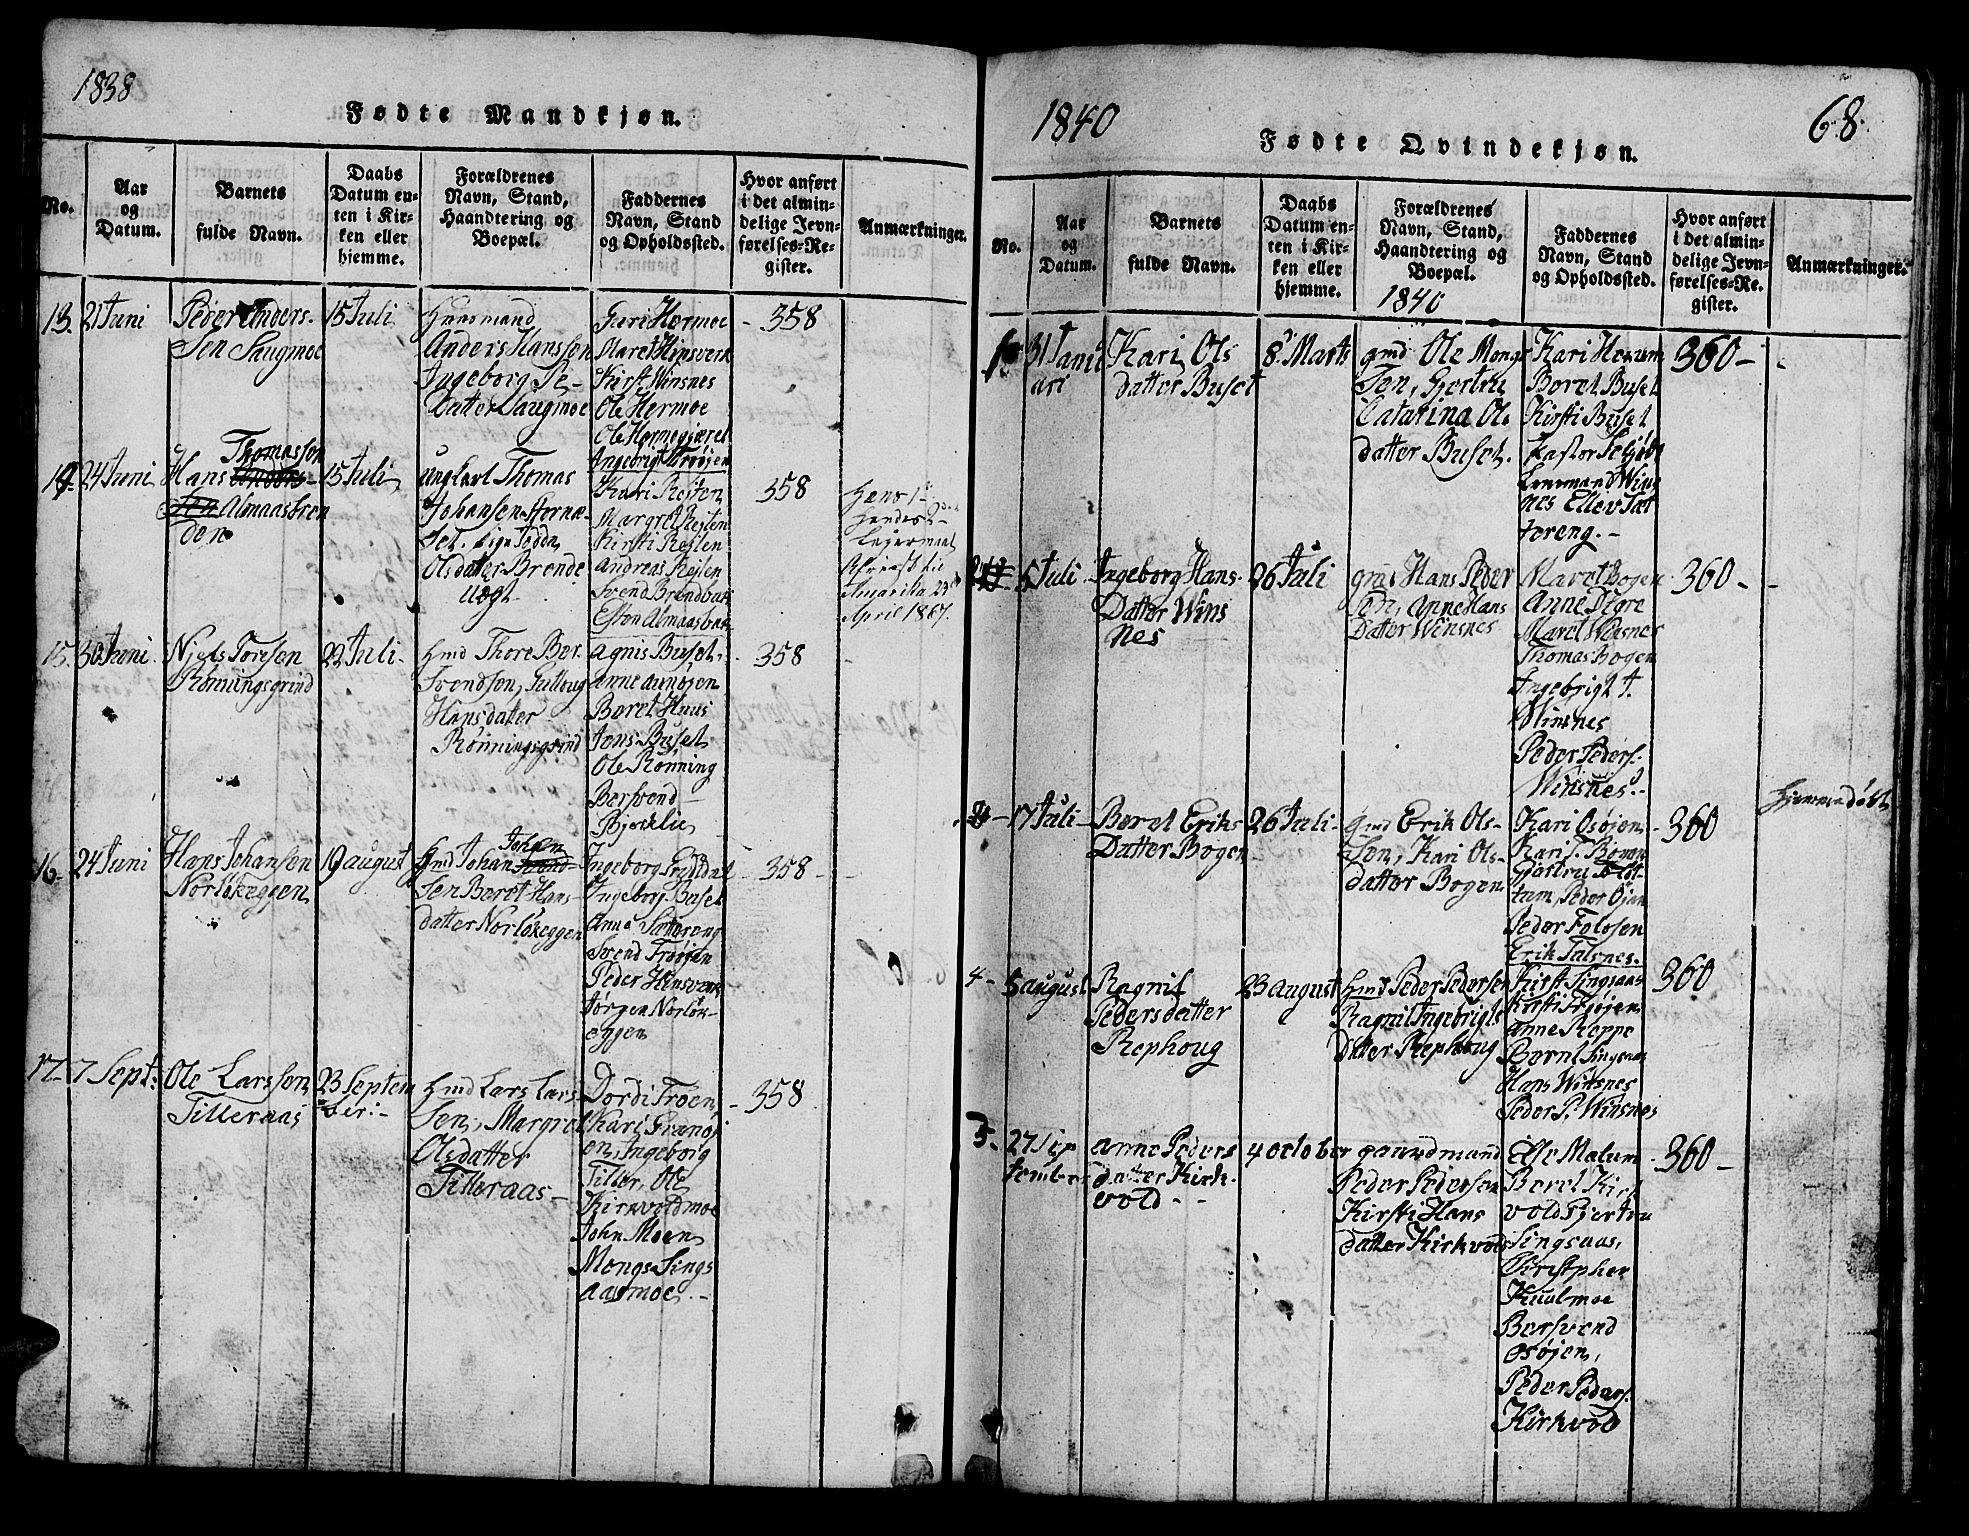 1838
Fødte Mandkjøn.
No.
Aar
og
Datum.
Barnets
fulde Navn.
Daabs
Datum en-
ten i Kir-
ken eller
hjemme.
Forældrenes
Navn, Stand,
Haandtering og
Boepæl.
Faddernes
Navn, Stand
og Opholdssted.
Hvor anført
i det almin-
delige Jevn-
førelses-Re-
gister.
Anmærkninger.
13.
21 Juni
Peder Anders-
Sen Saugmoe
15 Juli
Huusmand
Anders Hanssen
Ingeborg Pe-
Datter Saugmoe
Guri Hermoe
Maret Hinsverk
Kirst Winsnes
Ole Hermoe
Ole Hermogjæret
Ingebrigt Trøjen
- 358
14.
24 Juni
Thomassen
Hans Anders-
Sen Almaasbren
den
15 Juli
Ungkarl Thomas
Johansen Fornæ-
Set. Pige Todda
Olsdatter Brende
Kari Rejten
Margret Rejten
Kirsti Rejten
Andreas Rejten
Svend Brendbak
Esten Almaasbak
358
Hans 1-
Hendes 2-
Lejermaal
Amarika 23
April 1867.
15.
30 Juni
Niels Toresen
Rønningsgrind
22 Juli
Hmd Thore Ber-
Svendsen, Gullaug
Hansdatter
Rønningsgrind
Agnis Buset
Anne Aunøjen
Beret Huus
Jens Buset
Ole Rønning
Bersvend
Bjørklie
358
16.
24 Juni
Hans Johansen
Norløkegjen
19 august
Johan
Hmd Johan
Sen Beret Hans-
datter Norløkeggen
Ingeborg
Ingeborg Buset
Anne Sættereng
Svend Trøjen
Peder Hinsverk
Jørgen Norløk-
eggen
- 358 -
17-
7 Sept:
Ole Larssen
Tilleraas
23 Septem
ber:-
Hmd Lars Lars-
Sen, Margret
Olsdatter
Tilleraas-
Dordi Troen,
Kari Granøj
en, Ingeborg
Tiller, Ole
Kirkvoldmoe
John Moen
Mongs Sings
aasmoe.-
- 358
1840
68.
Fødte Qvindekjøn.
No.
Aar
og
Datum.
Barnets
fulde Navn.
Daabs
Datum en-
ten i Kir-
ken eller
hjemme.
Forældrenes
Navn, Stand,
Haandtering og
Boepæl.
1840
Faddernes
Navn, Stand
og Opholdssted.
Hvor anført
i det almin-
delige Jevn-
førelses-Re-
gister.
Anmærkninger.
1.
31 Janu
ari
Kari Ols
datter Buset
8. Marts
gmd Ole Mongs
Sen, Gjertru
Catarina Ols
datter Buset.
Kari Herum
Beret Buset
Kirsti Buset
Pastor Schjøtz
Lensmand Wins
nes Ellev Sæt
tereng.-
360-
5 Juli
Ingeborg Hans-
Datter Wins
nes
26 Juli
gmd Hans Peder
Sen, Anne Hans
Datter Winsnes
Maret Bogen
Anne Digre
Maret Winsnes
Thomas Bogen
Ingebrigt J.
Winsnes
Peder Peders.
Winsnes.-
360 -
17 Juli-
Beret Eriks
Datter Bogen
26 Juli-
gmd Erik Ols-
Sen, Kari Ols-
datter Bogen
Kari Osøjen
Kari J. Bogen
Gjertru
tum, Peder Øjan
Peder Folosen
Erik Talsnes.
360
Hjemmedøbt
4-
5 august
Ragnil
Pedersdatter
Rephoug
23 august
Hmd Peder Pedersen
Ragnil Ingebrigts
Datter Rephoug
Kirst Singsaas
Kirsti Trøjen
Anne Reppe
Bernt Singsaas
Hans Winsnes
Peder P. Winsnes
360
5-
27 Sep
tember
Anne Peders
datter Kirk-
vold - -
4 october
gaardmand
Peder Pedersen
Kirsti Hans
datter Kirkvold
Else Malum
Beret Kirk
vold Gjertru
Singsaas,
Christpher
Kuulmoe
Bersvend
Osøjen,
Peder Peders.
Kirkvold
360 -